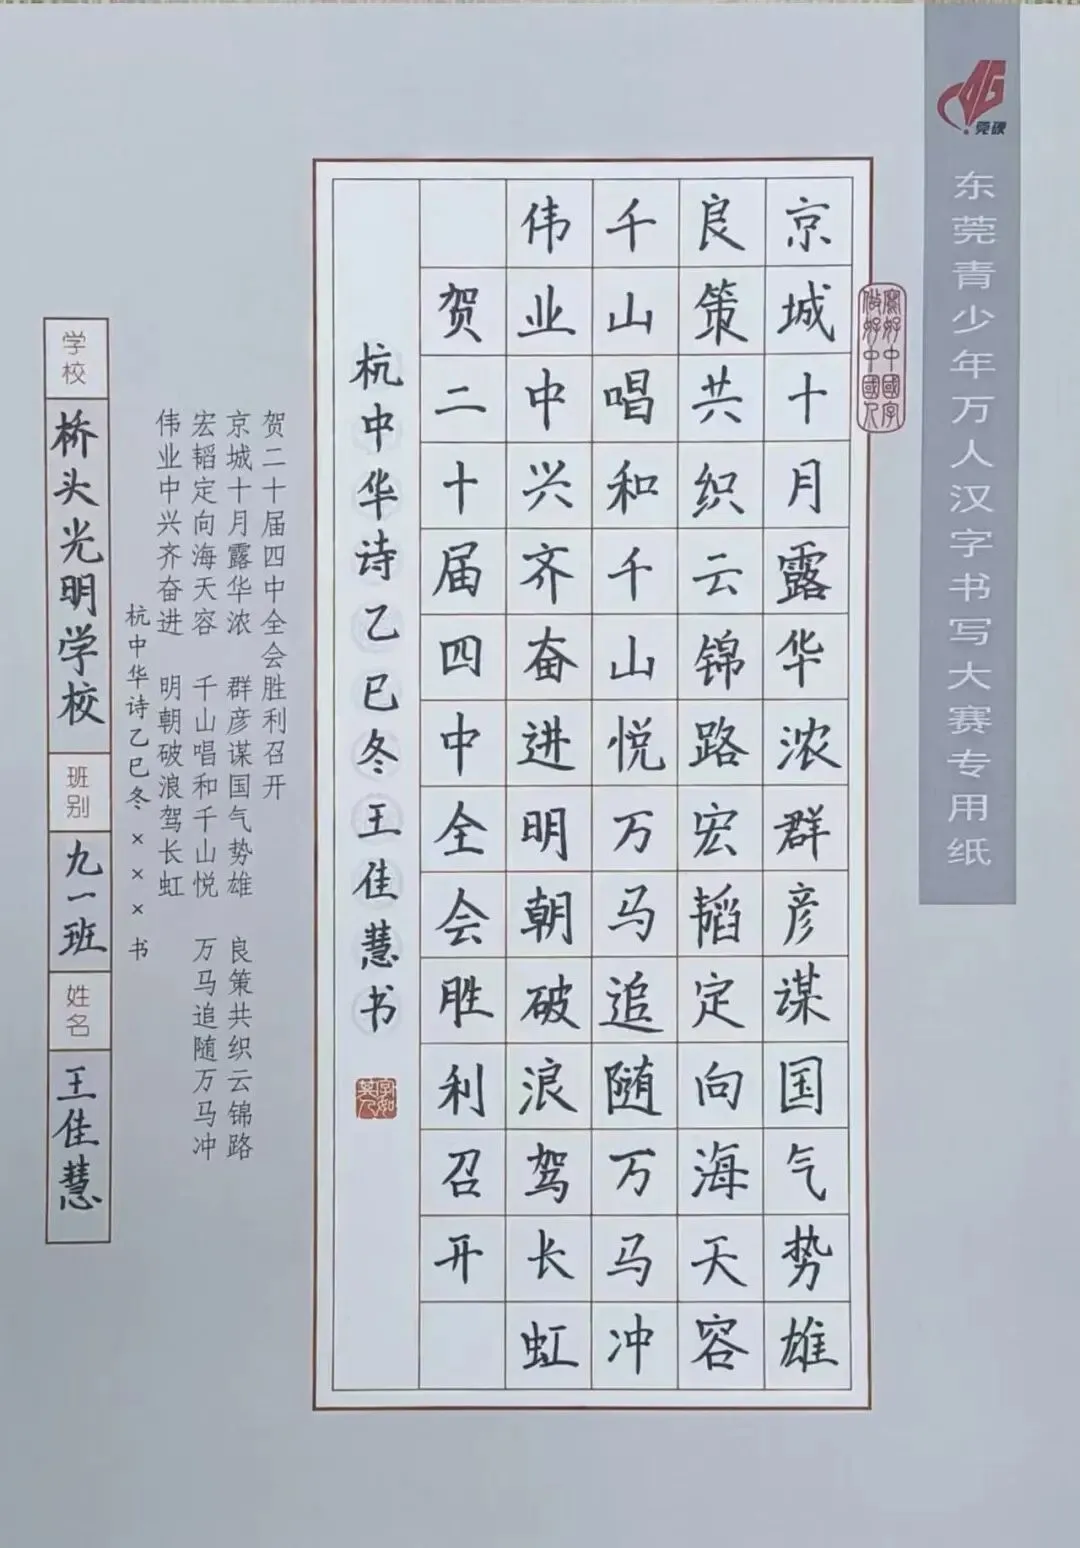 莞硬
东莞青少年万人汉字书写大赛专用纸
写好中國字
做好中國人
京城十月露华浓群彦谋国气势雄
良策共织云锦路宏韬定向海天容
千山唱和千山悦万马追随万马冲
伟业中兴齐奋进明朝破浪驾长虹
贺二十届四中全会胜利召开
杭中华诗乙巳冬王佳慧书
字如其人
贺二十届四中全会胜利召开
京城十月露华浓 群彦谋国气势雄 良策共织云锦路
宏韬定向海天容 千山唱和千山悦 万马追随万马冲
伟业中兴齐奋进 明朝破浪驾长虹
杭中华诗乙巳冬×××书
学校
桥头光明学校
班别
九一班
姓名
王佳慧